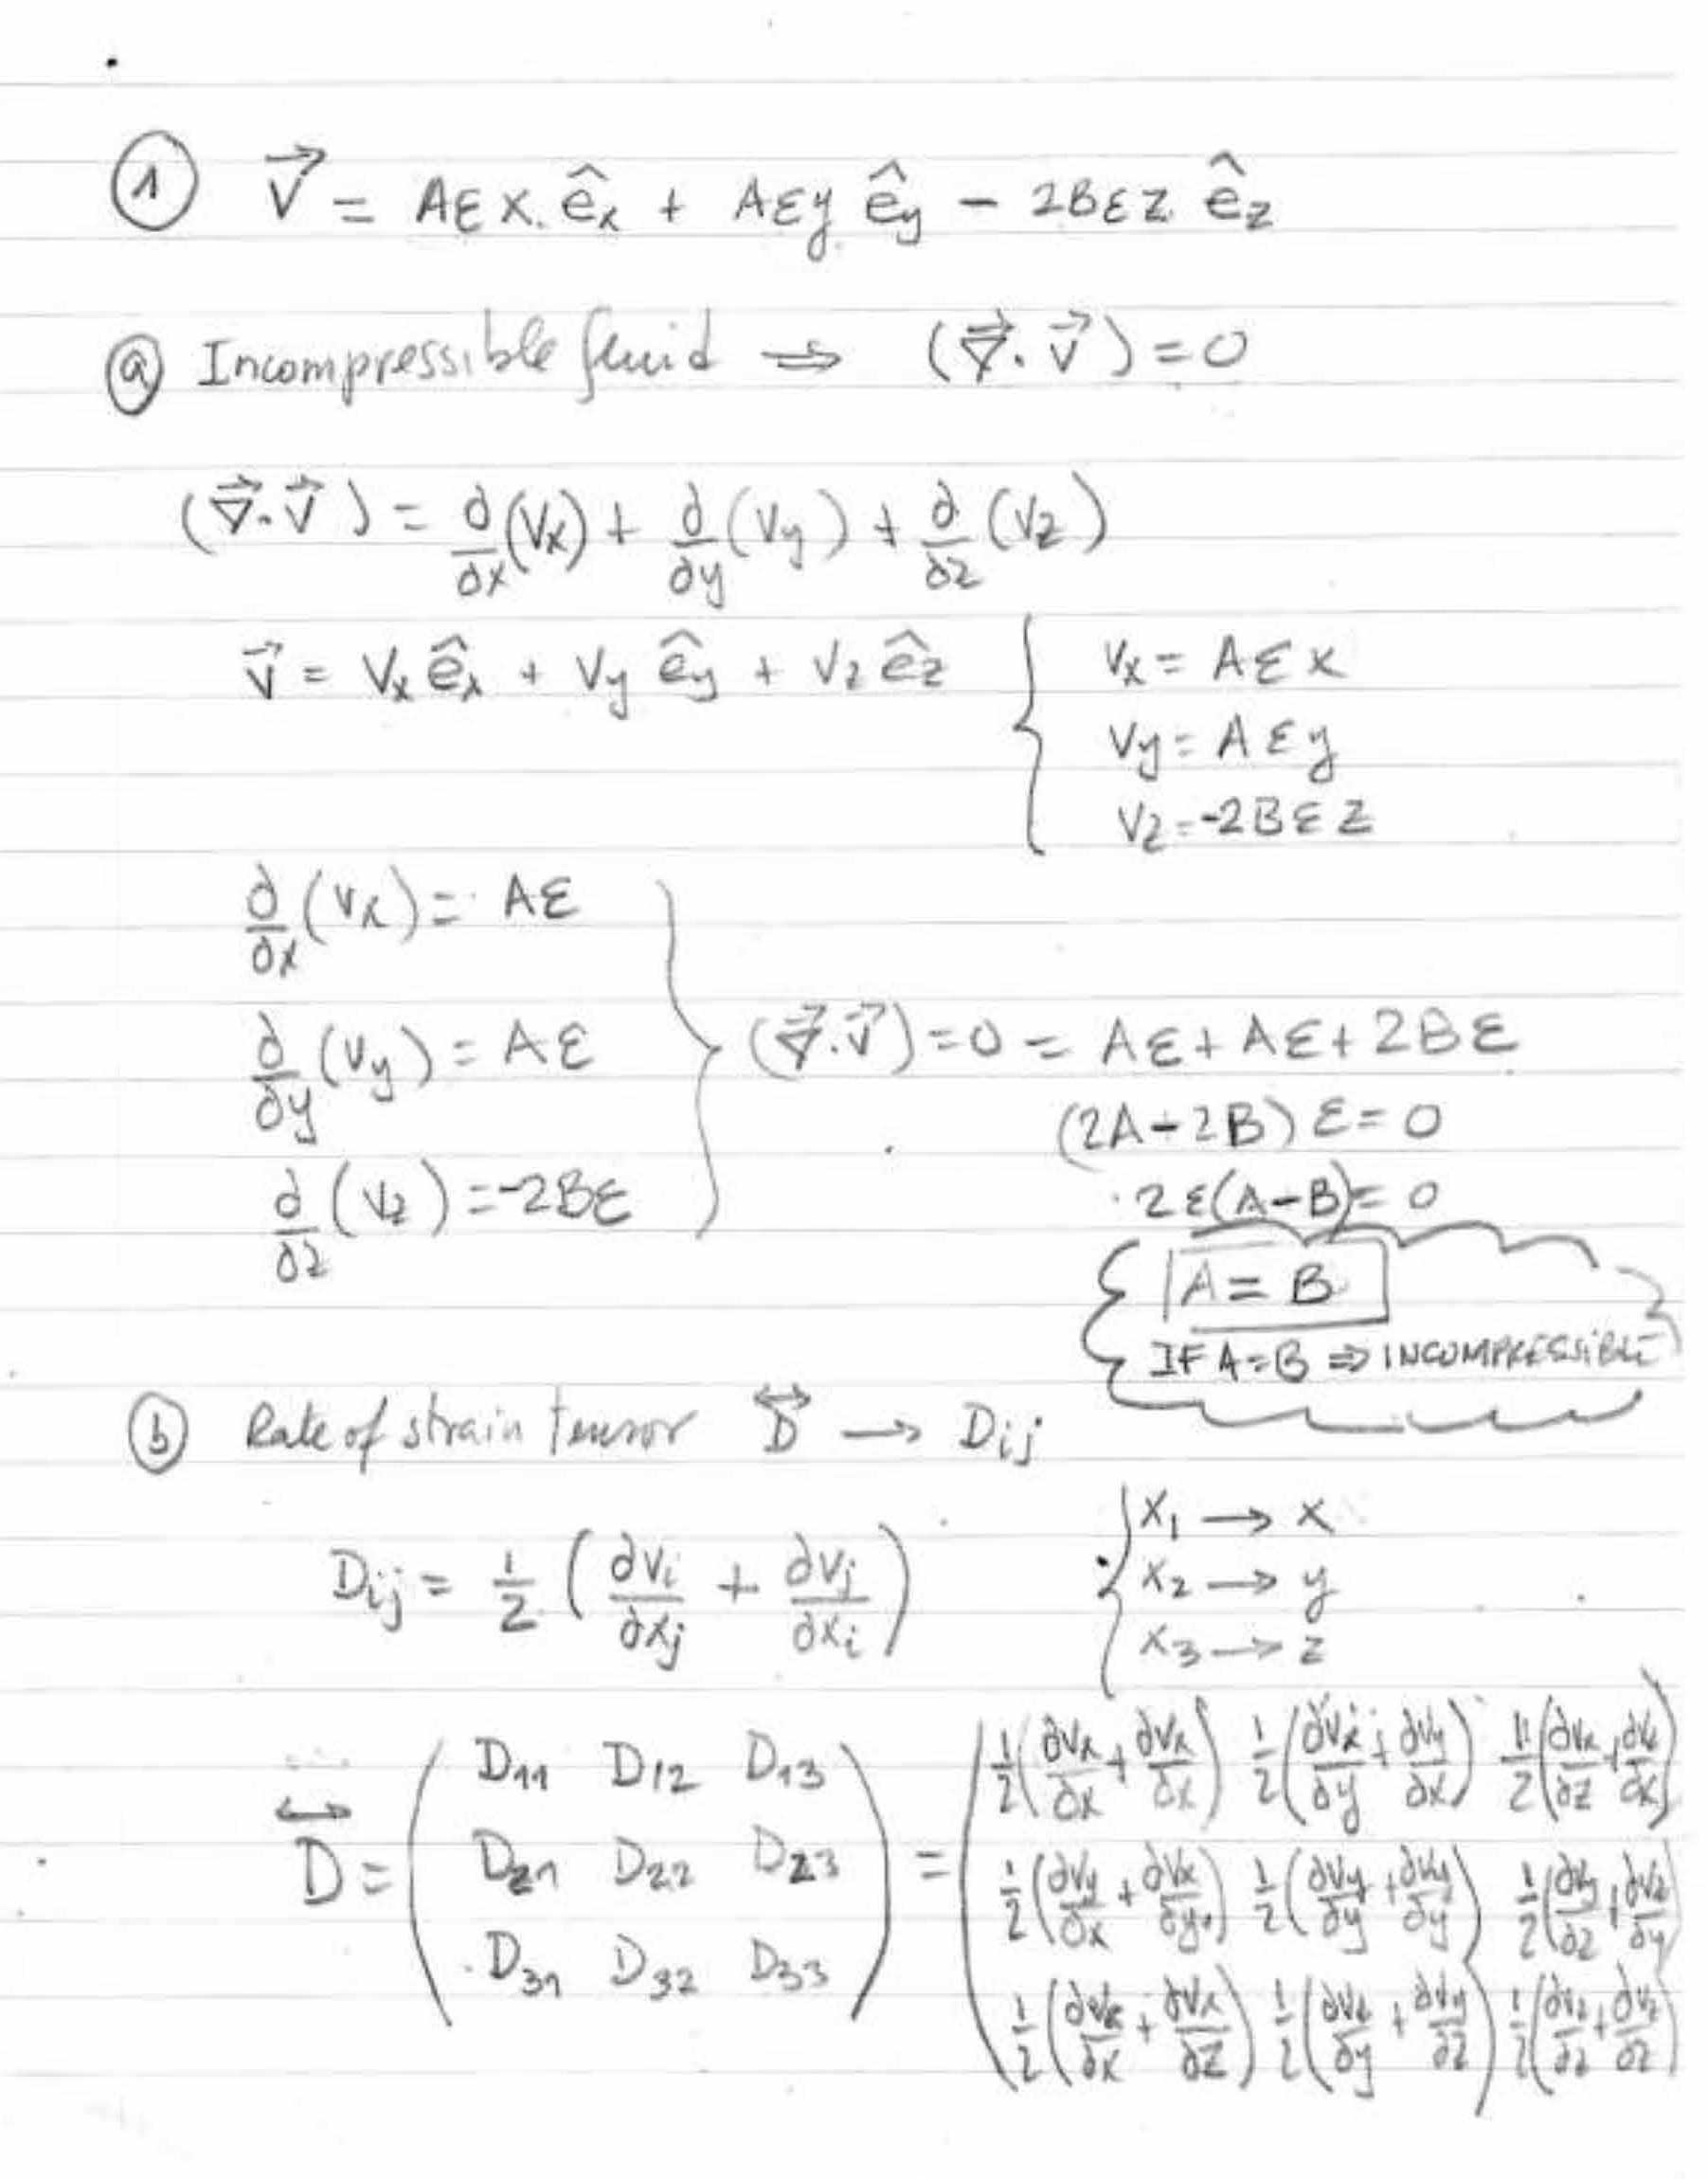 ① V⃗ = AεX. êx + Aεy êy − 2Bεz êz
ⓐ Incompressible fluid ⇒ (∇⃗·V⃗) = 0
(∇⃗·V⃗) = ∂/∂x (Vx) + ∂/∂y (Vy) + ∂/∂z (Vz)
v⃗ = Vx êx + Vy êy + Vz êz { Vx = AεX
Vy = Aεy
Vz = -2Bεz
∂/∂x (Vx) = Aε
∂/∂y (Vy) = Aε } (∇⃗·V⃗) = 0 = Aε + Aε + 2Bε
(2A-2B) ε = 0
∂/∂z (Vz) = -2Bε
2ε(A-B) = 0
A = B
IF A=B ⇒ INCOMPRESSIBLE
ⓑ Rate of strain tensor D⃡ → Dij
Dij = 1/2 (∂vi/∂xj + ∂vj/∂xi) { X1 → x
X2 → y
X3 → z
D⃡ = ( D11 D12 D13 ) = ( 1/2(∂Vx/∂x + ∂Vx/∂x) 1/2(∂Vx/∂y + ∂Vy/∂x) 1/2(∂Vx/∂z + ∂Vz/∂x)
D21 D22 D23 1/2(∂Vy/∂x + ∂Vx/∂y) 1/2(∂Vy/∂y + ∂Vy/∂y) 1/2(∂Vy/∂z + ∂Vz/∂y)
D31 D32 D33 1/2(∂Vz/∂x + ∂Vx/∂z) 1/2(∂Vz/∂y + ∂Vy/∂z) 1/2(∂Vz/∂z + ∂Vz/∂z)